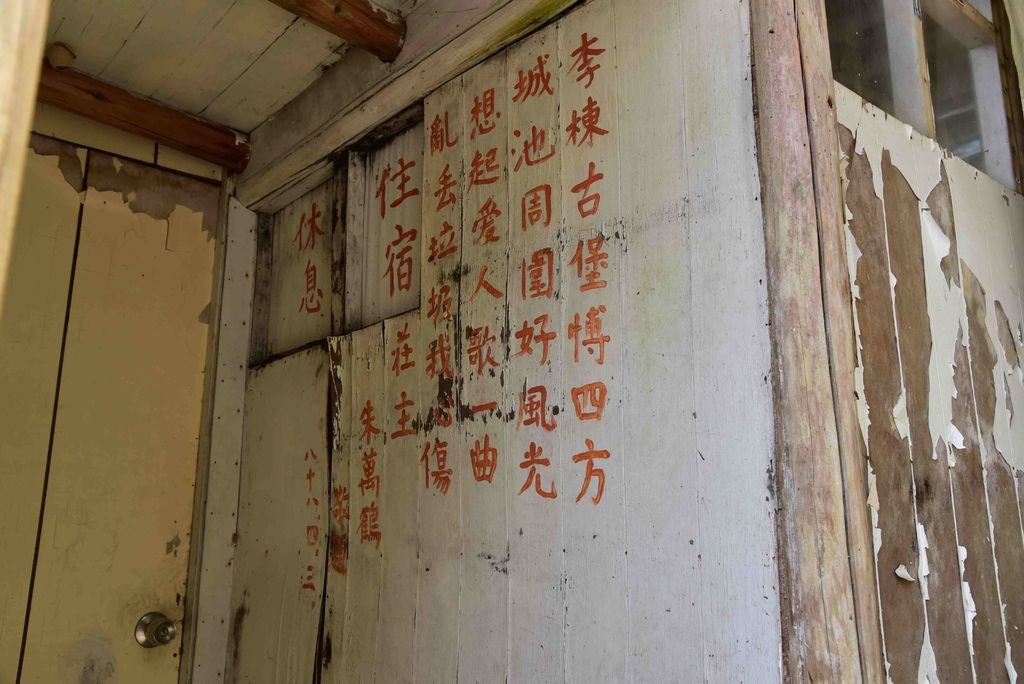 李棟古堡博四方
城池周圍好風光
想起愛人歌一曲
亂丟垃圾我心傷
住宿
休息
莊主
朱萬鶴
敬題
八十八.四.三